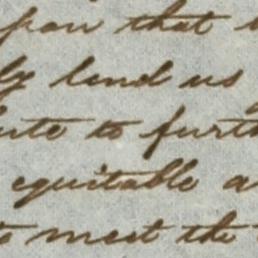 upon that
ly lend us
ute to furth
equitable a
to meet the